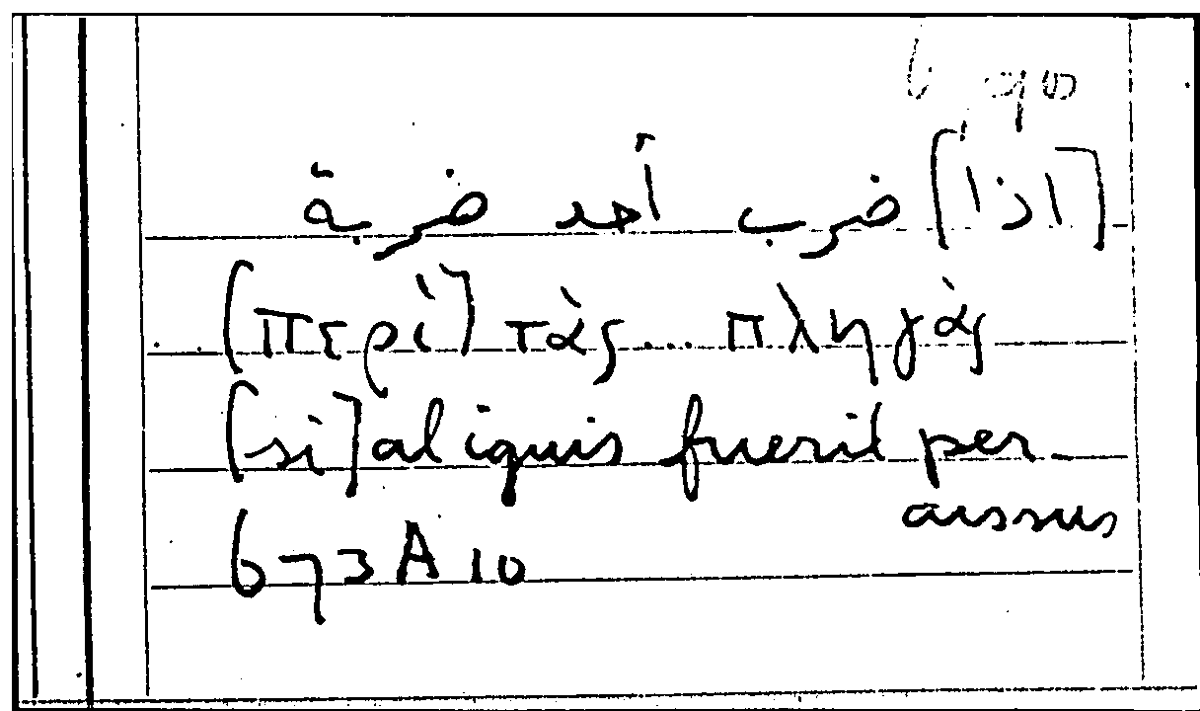 [اذا] ضرب أحد ضربة
(περὶ) τὰς... πληγὰς
[si] aliquis fuerit per-
cussus
673A10